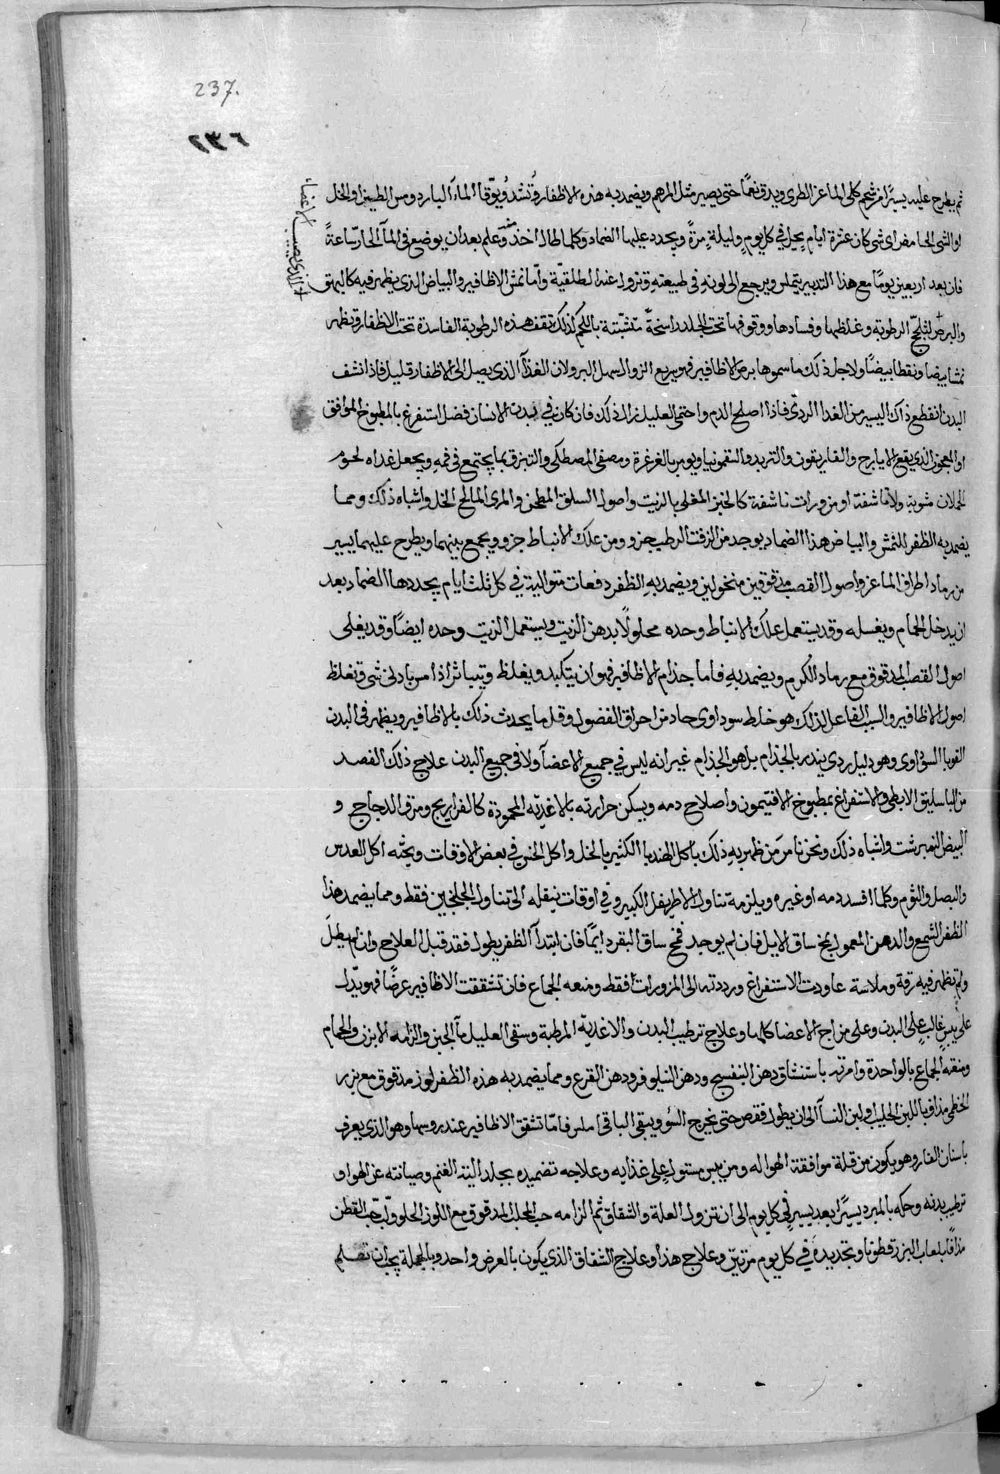 237.
٢٣٦
ثم يطرح عليه يسيرا من شحم كلى الماعز الطرى ويدق نعما حتى يصير مثل المرهم ويضمد به هذه الاظفار وتشد ويوقا الماء البارد ومس الطين والخل
او الشى الحامض اى شى كان عشرة ايام يحل فى كل يوم وليلة مرة ويجدد عليها الضماد وكلما طال اخذ وقلم بعد ان يوضع فى الماء الحار ساعة
فان بعد اربعين يوما مع هذا التدبير يتملس ويرجع الى لونه فى طبيعته وتزول عنه الطلقية واما نمش الاظافير والبياض الذى يظهر فيه كالبهق
والبرص الرطوبة وغلظها وفسادها ووقوفها تحت الجلد راسخة متشبثة باللحم كذلك تقف هذه الرطوبة الفاسدة تحت الاظفار وتظهر
نمشا بيضا ونقطا بيضا ولاجل ذلك ما سموها برص الاظافير فهو سريع الزوال سهل البرو لان الغذآ الذى يصل الى الاظفار قليل فاذا نشف
البدن انقطع ذاك اليسير من الغدا الردى فاذا اصلح الدم واحتمى العليل زال ذلك فان كان فى بدن الانسان فضل استفرغ بالمطبوخ الموافق
او المعجون الذى يقع الايارج والغاريقون والتربد والسقمونيا ويومر بالغرغرة ومضغ المصطكى والتبزق بما يجتمع فى فمه ويجعل غداه لحوم
الحملان مشوية ولانا شفة او مزورات ناشفة كالخبز المغلى بالزيت واصول السلق المطجن والمرى المالح الخل واشباه ذلك ومما
يضمد به الظفر للنمش والبياض هذا الضماد يوجد من الزفت الرطب جزو ومن علك الانباط جزو ويجمع بينهما ويطرح عليهما يسير
من رماد اطراف الماعز واصول القصب مدقوقين منخولين ويضمد به الظفر دفعات متوالية فى كل ثلث ايام يجددها الضماد بعد
ان يدخل الحمام ويغسله وقد يستعمل علك الانباط وحده محلولا بدهن الزيت ويستعمل الزيت وحده ايضا وقد يغلى
اصول القصب المدقوق مع رماد الكرم ويضمد به فاما جذام الاظافير فهو ان يتكبد ويغلظ ويتبا ثر اذا مس بادنى شى وتغلظ
اصول الاظافير والسبب الفاعل لذلك هو خلط سوداوى حاد من احراق الفضول وقل ما يحدث ذلك بالاظافير ويظهر فى البدن
القوبا السوداوى وهو دليل ردى ينذر بالجذام بل هو الجذام غير انه ليس فى جميع الاعضآ ولا فى جميع البدن علاج ذلك الفصد
من الباسليق الابطى والاستفراغ بمطبوخ الافتيمون واصلاح دمه ويسكن حرارته بالاغذيه المحمودة كالفراريج ومزق الدجاج و
البيض النمبرشت واشباه ذلك ونحن نامر من ظهر به ذلك باكل الهندبا الكثير بالخل واكل الخس فى بعض الاوقات ويجنبه اكل العدس
والبصل والثوم وكلما افسد دمه او غيره ويلزمه تناول الاطريفل الكبير وفى اوقات نيقله الى تناول الجلنجبين فقط ومما يضمد هذا
الظفر الشمع والدهن المعمول بمخ ساق الايل فان لم يوجد فمخ ساق البقر دايما فان ابتدأ الظفر يطول فقد قبل العلاج وان لم يطل
ولم تظهر فيه رقة وملاسة عاودت الاستفراغ ورددته الى المزورات فقط ومنعه الجماع فان تشققت الاظافير عرضا فهو يدل
على يبس غالب على البدن وعلى مزاج الاعضا كلها وعلاج ترطيب البدن والاغذيه المرطبة وسقى العليل مآ الجبن والزامه الابزن والحمام
ومنعه الجماع بالواحدة وامرته باستنشاق دهن البنفسج ودهن النيلوفر ودهن القرع ومما يضمد به هذه الظفر لوز مدقوق مع بزر
الخطمى مذاف باللبن الحليب او لبن النسآ الى ان يطول فقص حتى يخرج السو ويبقى الباقى املس فاما تشقق الاظافير عند روسها وهو الذى يعرف
باسنان الفار وهو يكون من قلة موافقة الهوا له ومن يبس مستول على غذايه وعلاجه تضميده بجلد الية الغنم وصيانته عن الهوا و
ترطيب بدنه وحكه بالمبرد يسيرا بعد يسير فى كل يوم الى ان تزول العلة والشقاق ثم الزامه حب المحلب المدقوق مع اللوز الحلو ولب حب القطن
مذافا بلعاب البزرقطونا وتجديده فى كل يوم مرتين وعلاج هذا وعلاج الشقاق الذى يكون بالعرض واحد وبالجملة يجب ان تصلح